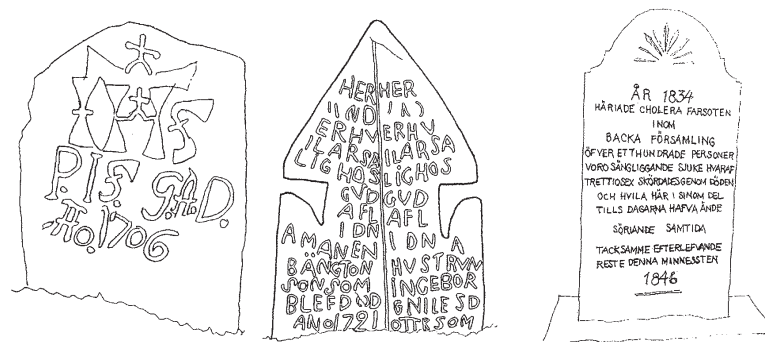 P.I.F. G.A.D.
Ao. 1706
HER
(IND
ERHV
ILARSA
LIGHOS
GVD
AFL
IDN
AMANEN
BÄNGTON
SONSOM
BLEFDÖD
ANO1721
HER
(A)
ERHV
ILARSA
LIGHOS
GVD
AFL
IDNA
HVSTRVN
INGEBOR
GNILESD
OTTRSOM
ÅR 1834
HÄRIADE CHOLERA FARSOTEN
INOM
BACKA FÖRSAMLING
ÖFVER ETTHUNDRADE PERSONER
VORO SÄNGLIGGANDE SJUKE HVARAF
TRETTIOSEX SKÖRDADES GENOM DÖDEN
OCH HVILA HÄR I SINOM DEL
TILLS DAGARNA HAFVA ÄNDE
SÖRIANDE SAMTIDA
TACKSAMME EFTERLEFVANDE
RESTE DENNA MINNESSTEN
1846